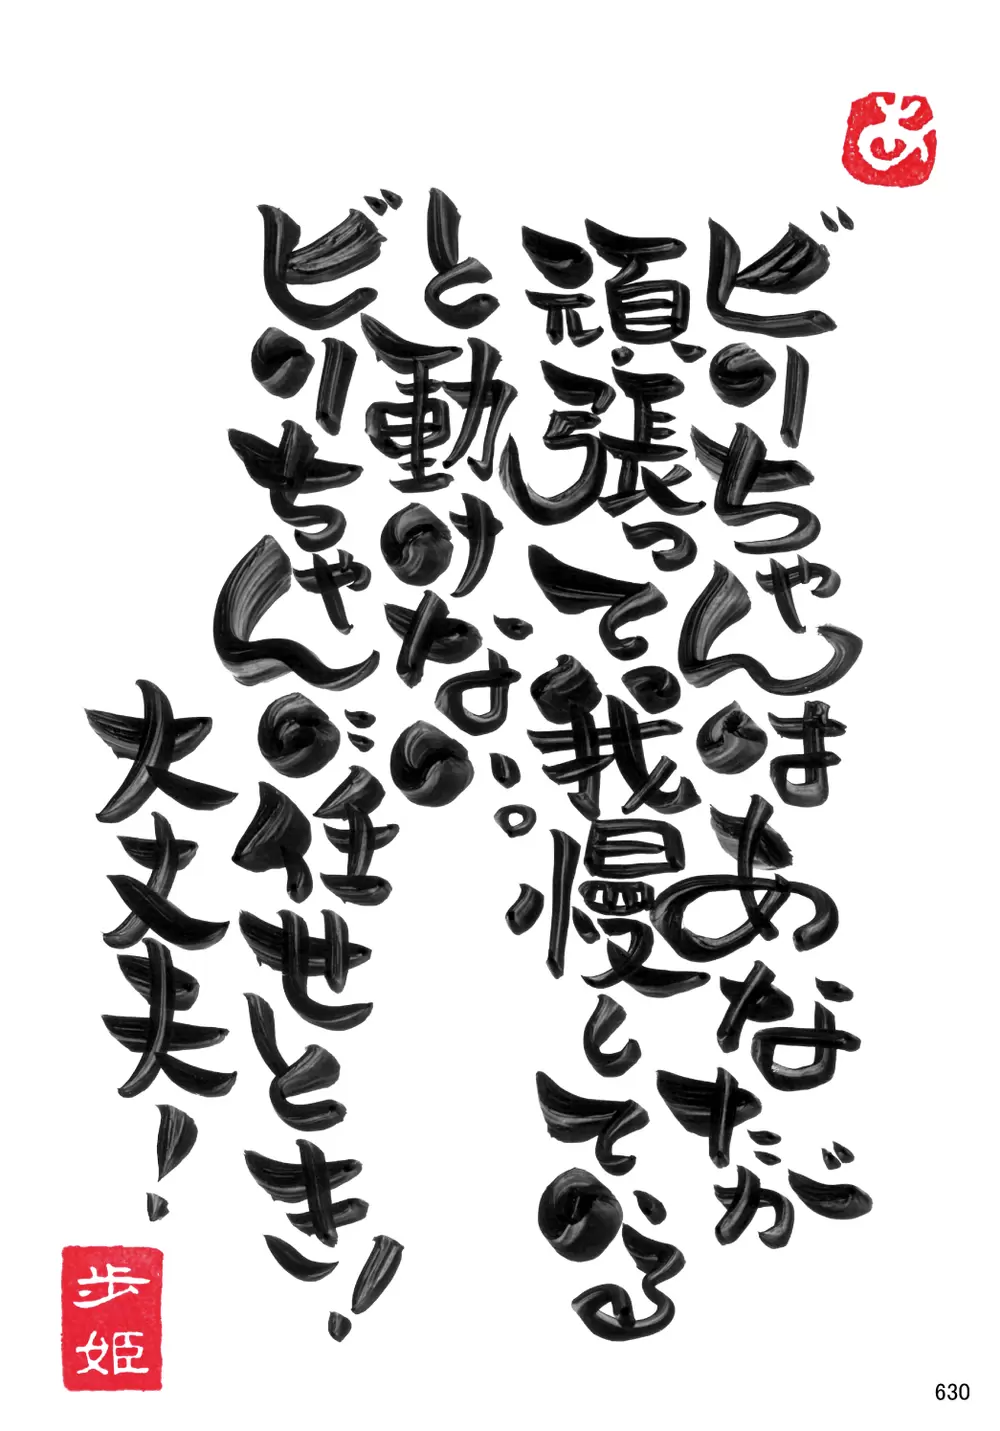 あ
ビりちゃんはあなただが
頑張って我慢している
と動けない。
ビりちゃんが任せとき!
大丈夫!
歩姫
630